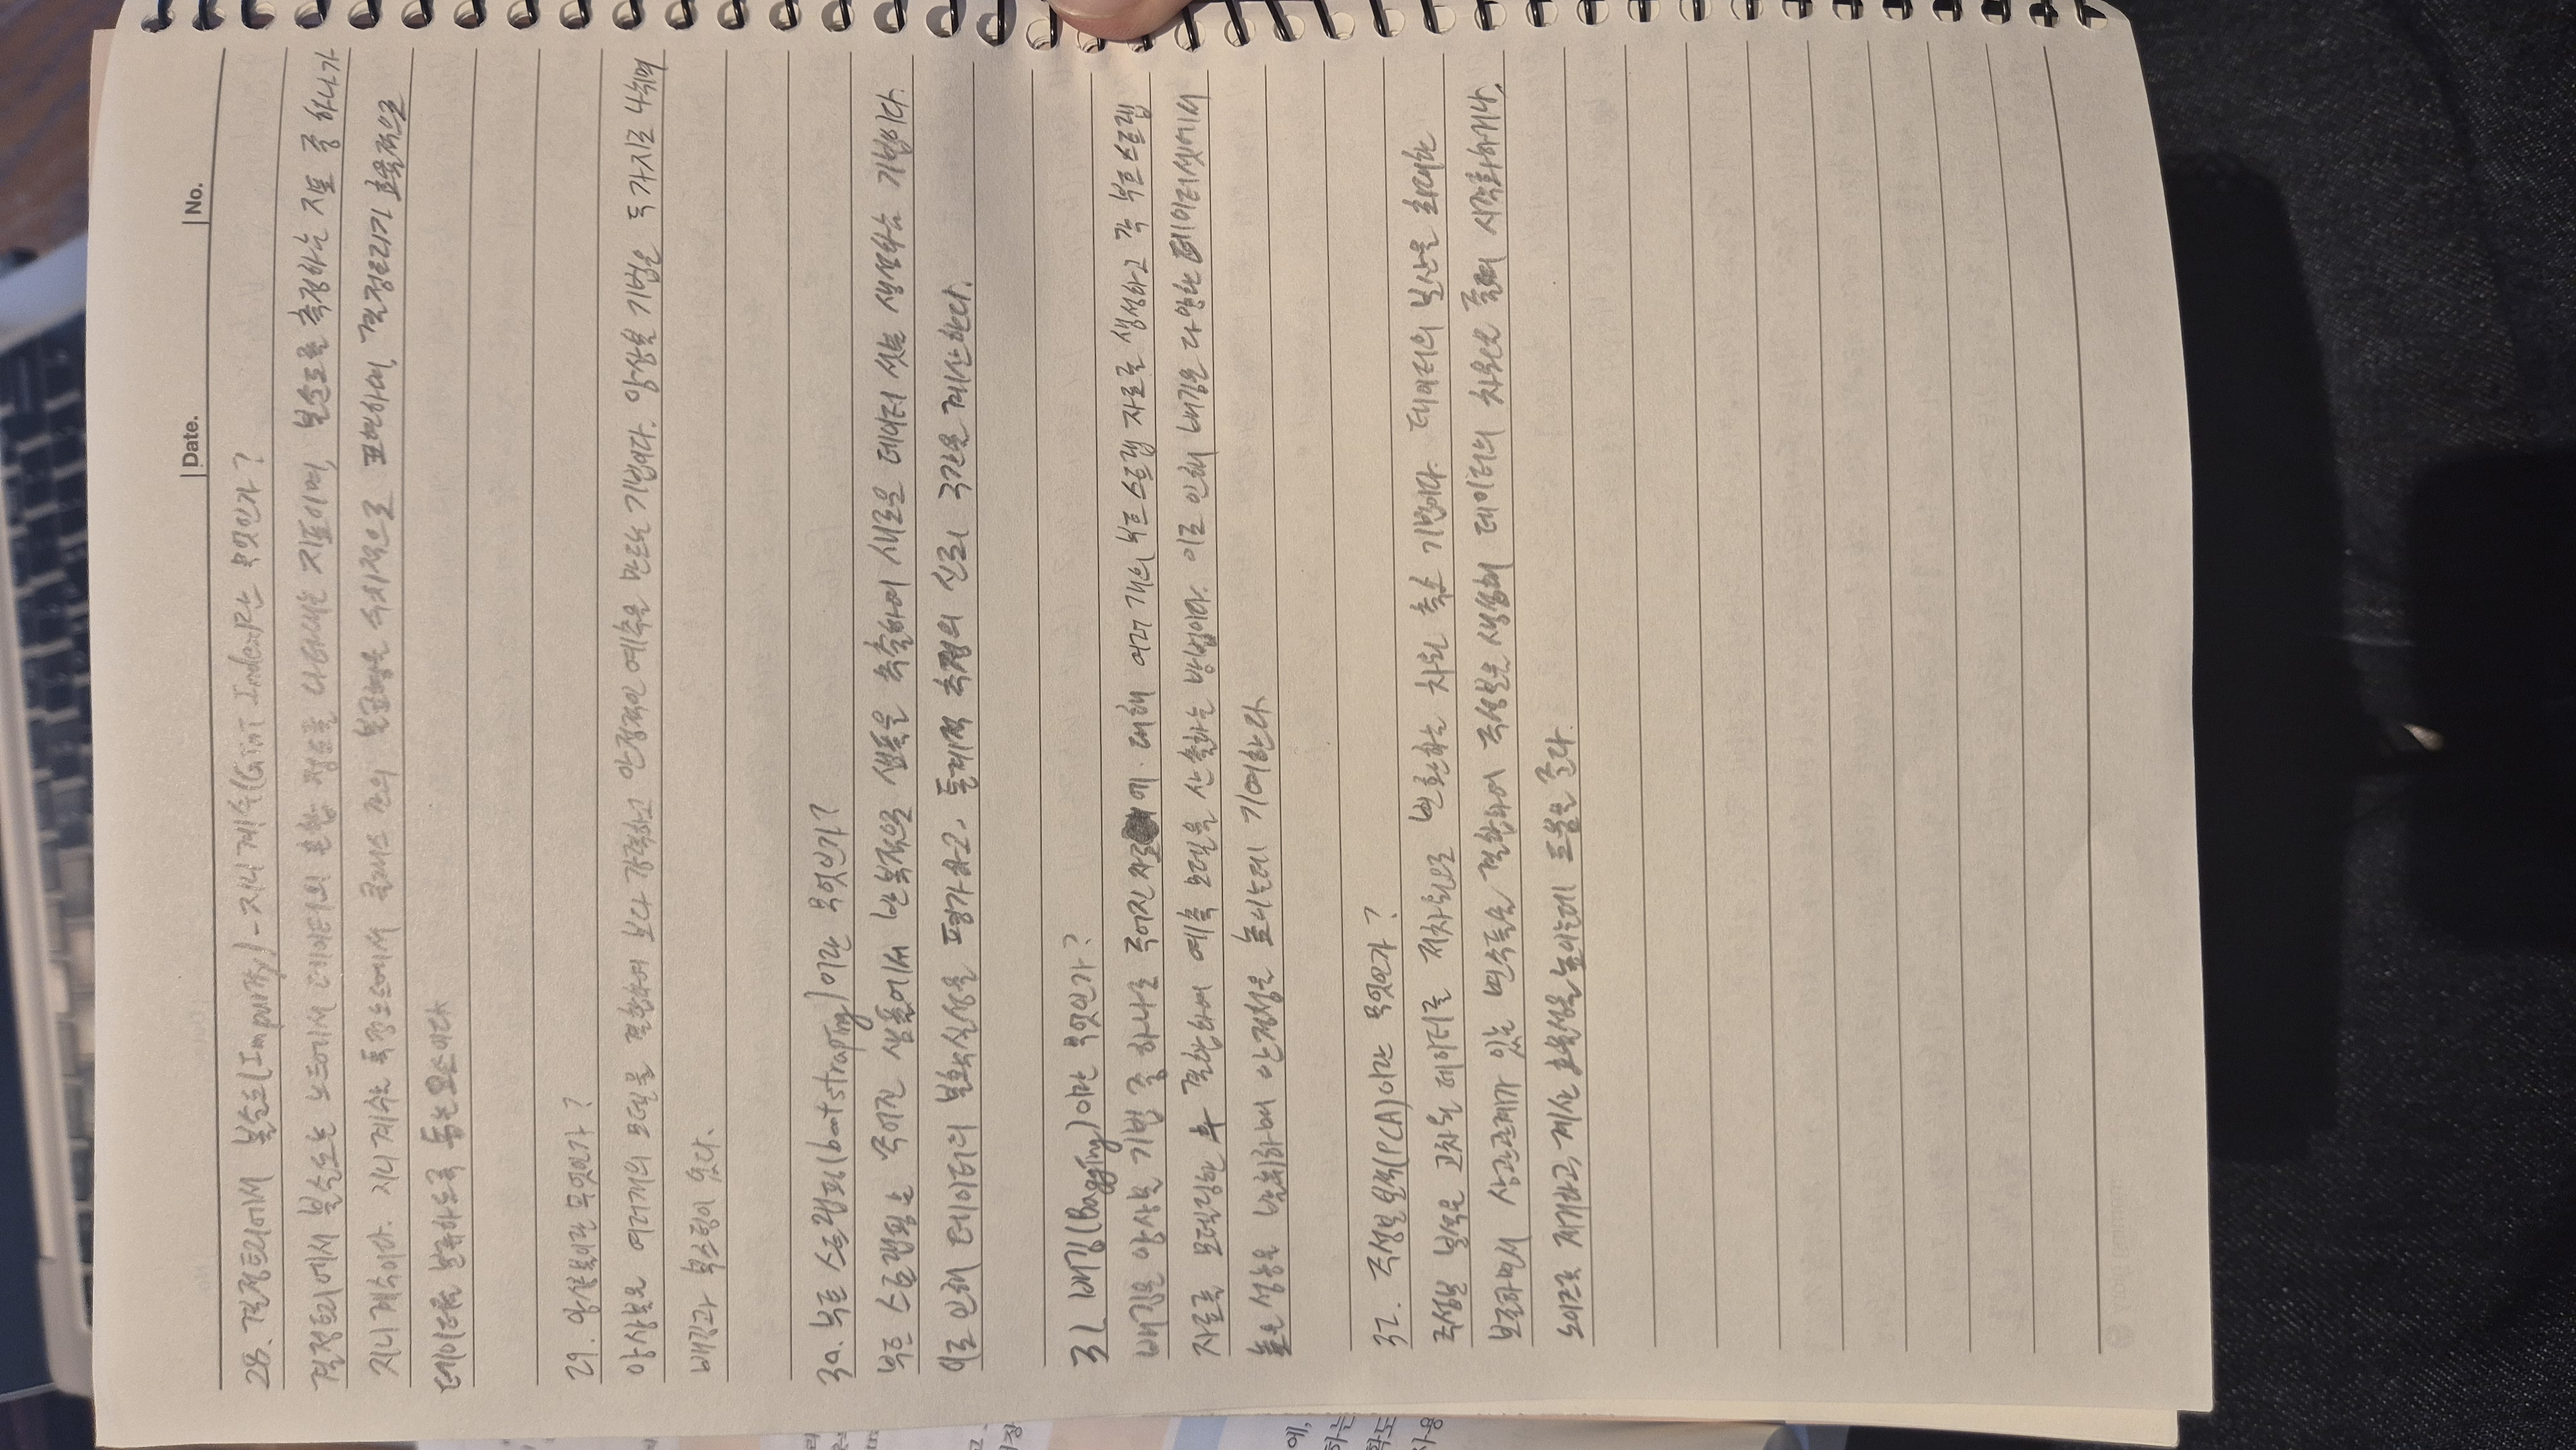 Date.
No.
28. 결정트리에서 불순도(Impurity) - 지니 계수(Gini Index)란 무엇인가?
결정트리에서 불순도는 노드에서 데이터의 혼합 정도를 나타내는 지표이며, 불순도를 측정하는 지표 중 하나가
지니 계수이다. 지니 계수는 특정노드에서 클래스 간의 불균형을 수치적으로 표현하며, 결정트리가 효율적으로
데이터를 분류하도록 돕는 요소이다
29. 앙상블이란 무엇인가?
앙상블은 여러개의 모델을 결합하여 보다 강력하고 안정적인 예측을 만드는 기법이다. 앙상블 기법은 두가지로 나뉘며
배깅과 부스팅이 있다.
30. 부트 스트랩핑(bootstraping)이란 무엇인가?
부트 스트랩핑은 주어진 샘플에서 반복적으로 샘플을 추출하여 새로운 데이터 셋을 생성하는 기법이다.
이로 인해 데이터의 불확실성을 평가하고, 통계적 측정의 신뢰 구간을 계산한다.
31. 배깅(Bagging)이란 무엇인가?
배깅은 앙상블 기법 중 하나로 주어진 자료에 대해 여러 개의 부트스트랩 자료를 생성하고 각 부트스트랩
자료를 모델링한 후 결합하여 예측 모델을 산출하는 방법이다. 이로 인해 배깅은 다양한 데이터셋에서
높은 성능을 발휘하며 안정성을 높이는데 기여한다.
32. 주성분 분석(PCA)이란 무엇인가?
주성분 분석은 고차원 데이터를 저차원으로 변환하는 차원 축소 기법이다. 데이터의 분산을 최대한
보존하면서 상관관계가 있는 변수들을 결합하여 주성분을 생성해 데이터의 차원을 줄여 시각화하거나,
노이즈를 제거하고, 계산 효율성을 높이는데 도움을 준다.
morning glory
에,
하는
확도
사용